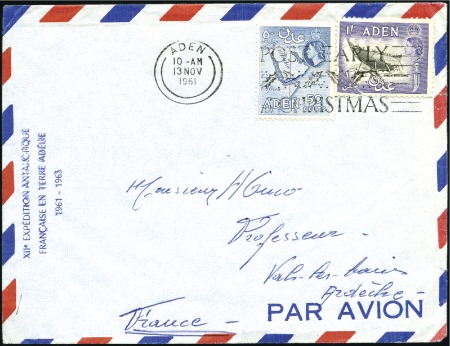 ADEN
10-AM
13 NOV
1961
POST EARLY
CHRISTMAS
عدن
ADEN
1/- ADEN
XIIe EXPÉDITION ANTARCTIQUE
FRANÇAISE EN TERRE ADÉLIE
1961 - 1963
Monsieur
Professeur
Vals-les-Bains
Ardèche
France
PAR AVION